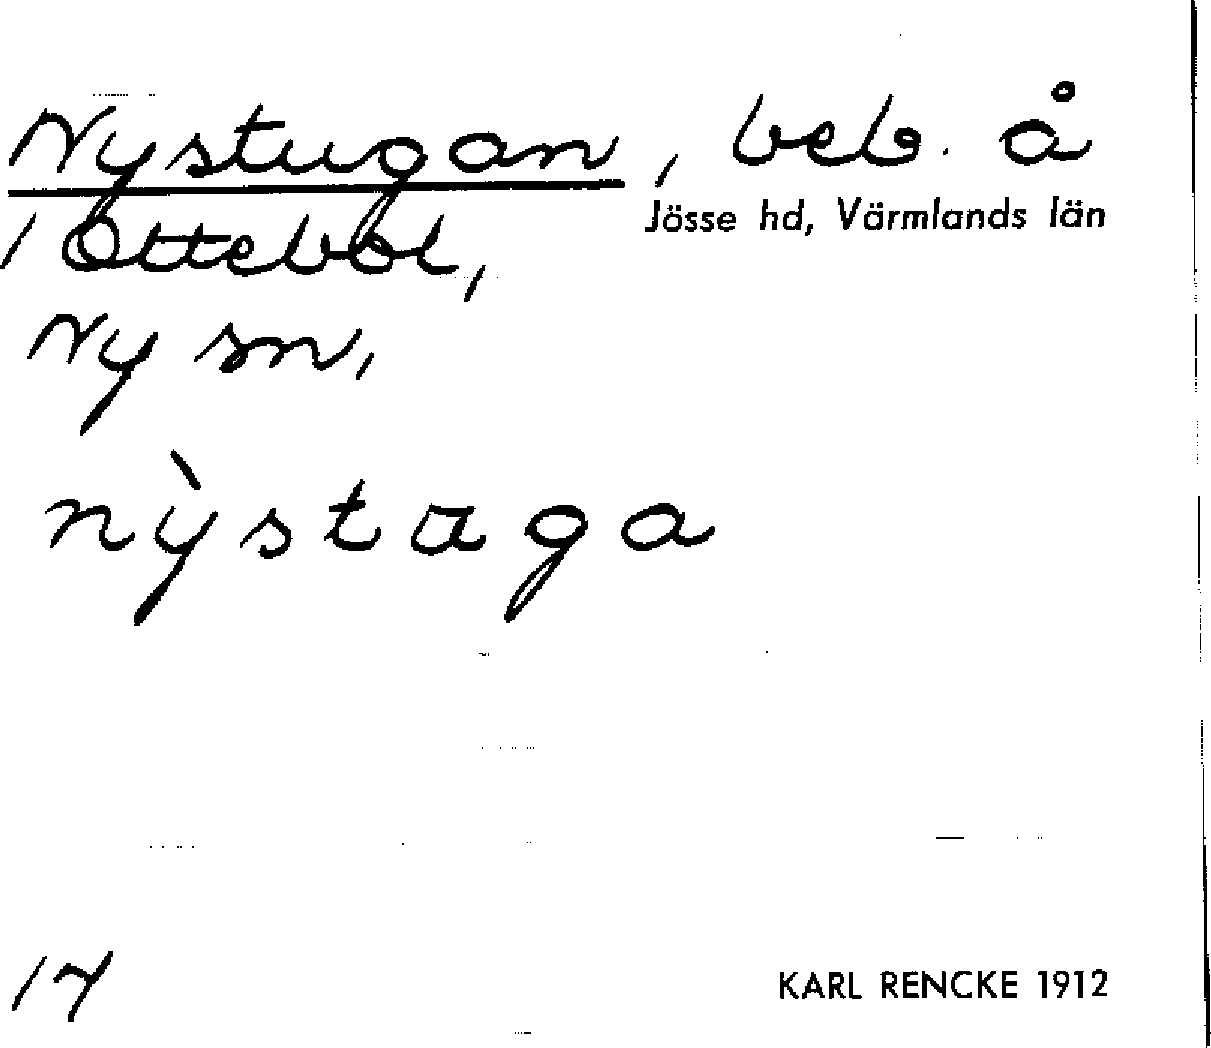 Nystugan, beb. å
Jösse hd, Värmlands län
1 Ottebol,
Ny sn,
nỳstaga
17
KARL RENCKE 1912